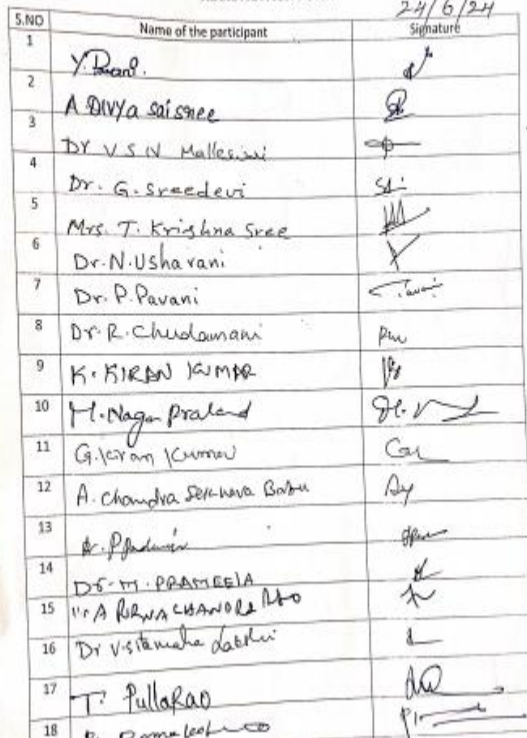 24/6/24
S.NO Name of the participant Signature
1 Y. Pavani.
2 A DIVYA sai sree
3 Dr V S N Malleswi
4 Dr. G. Sreedevi
5 Mrs. T. Krishna Sree
6 Dr. N. Usharani
7 Dr. P. Pavani
8 Dr. R. Chudamani
9 K. KIRAN KUMAR
10 M. Naga
11 G. Kiran Kumar
12 A. Chandra Sekhara Babu
13
14 Dr. M. PRAMEELA
15 A PURNA CHANDRA RAO
16 Dr V. sitamaha Lakshi
17 T. PullaRao
18